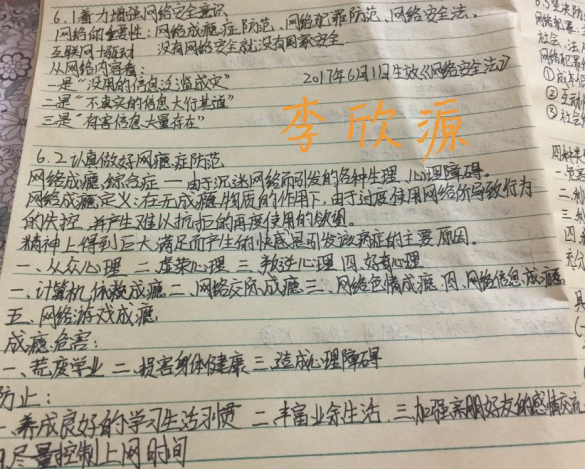 6.1着力增强网络安全意识
网络的重要性:网络成瘾症防范、网络犯罪防范、网络安全法。
互联网+驱动 没有网络安全就没有国家安全
从网络内容看:
一是“没用的信息泛滥成灾” 2017年6月1日生效《网络安全法》
二是“不真实的信息大行其道”
三是“有害信息大量存在”
李欣源
6.2认真做好网瘾症防范
网络成瘾综合症—由于沉迷网络而引发的各种生理、心理障碍。
网络成瘾定义:在无成瘾物质的作用下,由于过度使用网络所导致行为
的失控,并产生难以抗拒的再度使用的欲望。
精神上得到巨大满足而产生的快感是引发该病症的主要原因。
一、从众心理 二、虚荣心理 三、叛逆心理 四、好奇心理
一、计算机依赖成瘾 二、网络交际成瘾 三、网络色情成瘾 四、网络信息成瘾
五、网络游戏成瘾
成瘾危害:
一、荒废学业 二、损害身体健康 三、造成心理障碍
防止:
一、养成良好的学习生活习惯 二、丰富业余生活 三、加强亲朋好友的感情交流
尽量控制上网时间